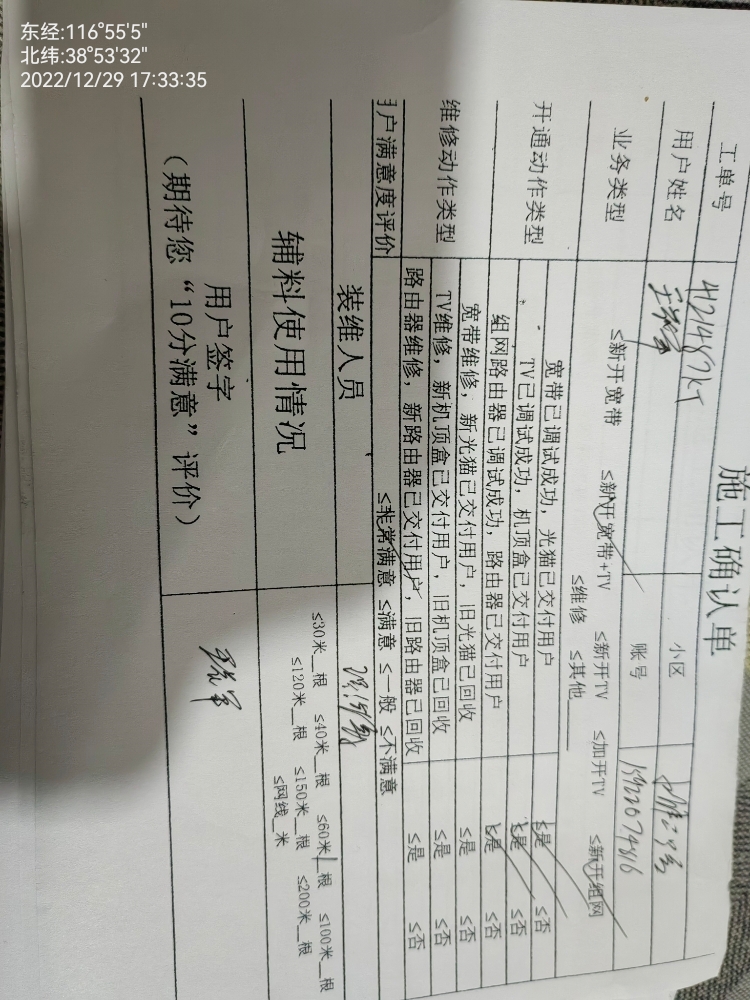 东经:116°55'5"
北纬:38°53'32"
2022/12/29 17:33:35
施工确认单
工单号
用户姓名 小区
业务类型 账号
≤新开宽带 ≤新开宽带+TV ≤新开TV ≤加开TV ≤新开组网
≤维修 ≤其他____
开通动作类型
宽带已调试成功，光猫已交付用户 ≤是 ≤否
TV已调试成功，机顶盒已交付用户 ≤是 ≤否
组网路由器已调试成功，路由器已交付用户 ≤是 ≤否
维修动作类型
宽带维修，新光猫已交付用户，旧光猫已回收 ≤是 ≤否
TV维修，新机顶盒已交付用户，旧机顶盒已回收 ≤是 ≤否
路由器维修，新路由器已交付用户，旧路由器已回收 ≤是 ≤否
户满意度评价 ≤非常满意 ≤满意 ≤一般 ≤不满意
装维人员
辅料使用情况
≤30米__根 ≤40米__根 ≤60米__根 ≤100米__根
≤120米__根 ≤150米__根 ≤200米__根
≤网线__米
用户签字
（期待您“10分满意”评价）